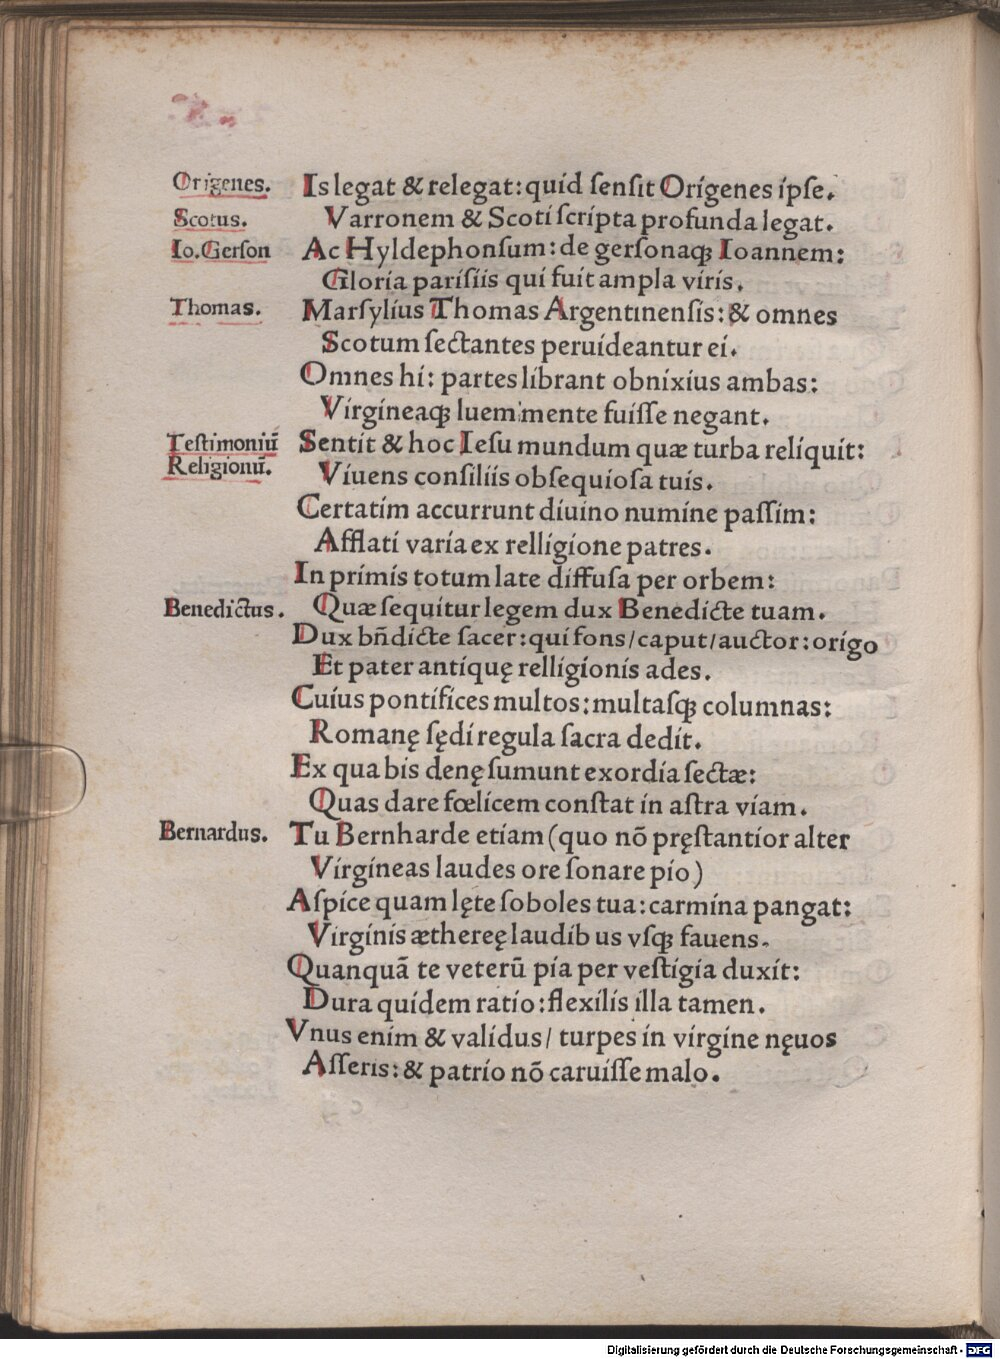 Origenes. Is legat & relegat: quid senſit Origenes ipſe.
Scotus. Varronem & Scoti ſcripta profunda legat.
Io. Gerſon Ac Hyldephonſum: de gerſonaqꝫ Ioannem:
Gloria pariſiis qui fuit ampla viris.
Thomas. Marſylius Thomas Argentinenſis: & omnes
Scotum ſectantes peruideantur ei.
Omnes hi: partes librant obnixius ambas:
Virgineaqꝫ luem mente fuiſſe negant.
Teſtimoniū Sentit & hoc Ieſu mundum quæ turba reliquit:
Religionū. Viuens conſiliis obſequioſa tuis.
Certatim accurrunt diuino numine paſſim:
Afflati varia ex relligione patres.
In primis totum late diffuſa per orbem:
Benedictus. Quæ ſequitur legem dux Benedicte tuam.
Dux bn̄dicte ſacer: qui fons/ caput/ auctor: origo
Et pater antiquę relligionis ades.
Cuius pontifices multos: multaſqꝫ columnas:
Romanę ſędi regula ſacra dedit.
Ex qua bis denę ſumunt exordia ſectæ:
Quas dare fœlicem conſtat in aſtra viam.
Bernardus. Tu Bernharde etiam (quo nō pręſtantior alter
Virgineas laudes ore ſonare pio)
Aſpice quam lęte ſoboles tua: carmina pangat:
Virginis æthereę laudib us vſqꝫ fauens.
Quanquā te veterū pia per veſtigia duxit:
Dura quidem ratio: flexilis illa tamen.
Vnus enim & validus/ turpes in virgine nęuos
Aſſeris: & patrio nō caruiſſe malo.
Digitalisierung gefördert durch die Deutsche Forschungsgemeinschaft - DFG